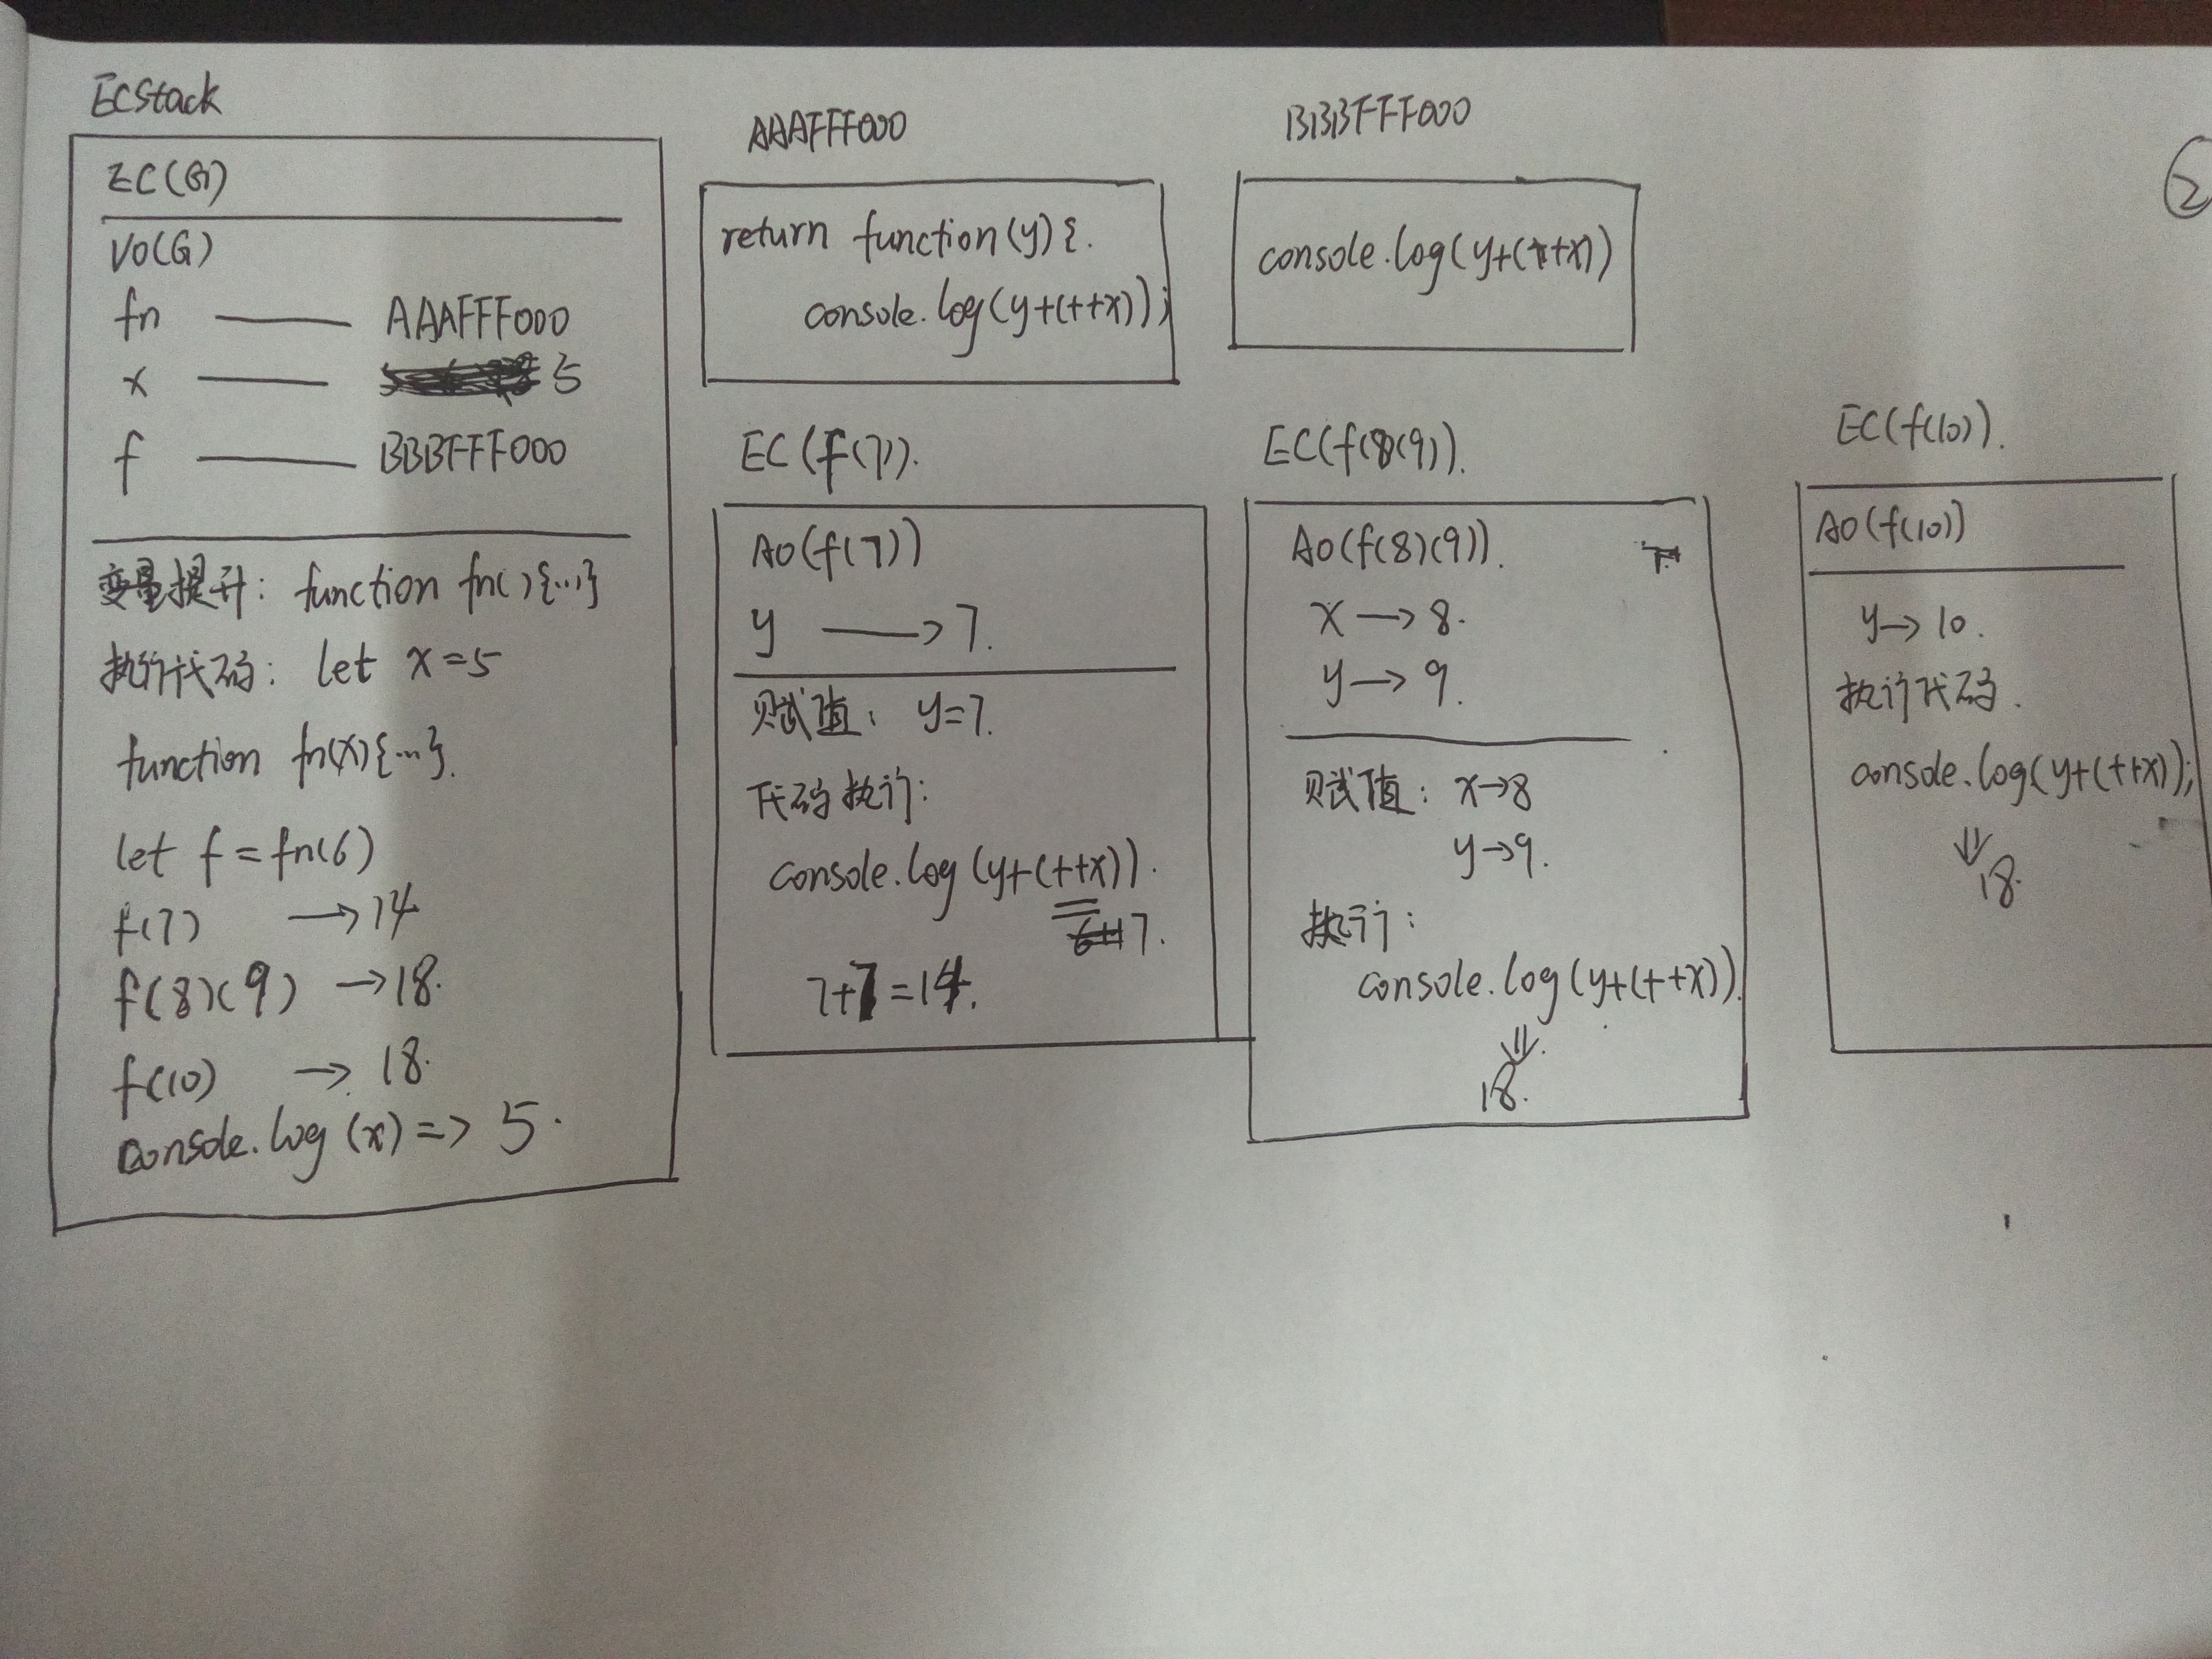 ECStack
EC(G)
VO(G)
fn —— AAAFFF000
x —— 5
f —— BBBFFF000
变量提升: function fn(){...}
执行代码: let x=5
function fn(x){...}.
let f = fn(6)
f(7) → 14
f(8)(9) → 18.
f(10) → 18.
console.log(x) => 5.
AAAFFF000
return function(y){.
console.log(y+(++x));
BBBFFF000
console.log(y+(++x))
②
EC(f(7)).
AO(f(7))
y → 7.
赋值: y=7.
代码执行:
console.log(y+(++x)).
7.
7+7=14.
EC(f(8(9)).
AO(f(8)(9)).
x → 8.
y → 9.
赋值: x→8
y→9.
执行:
console.log(y+(++x)).
⇓.
18.
EC(f(10)).
AO(f(10))
y→10.
执行代码.
console.log(y+(++x));
⇓
18.